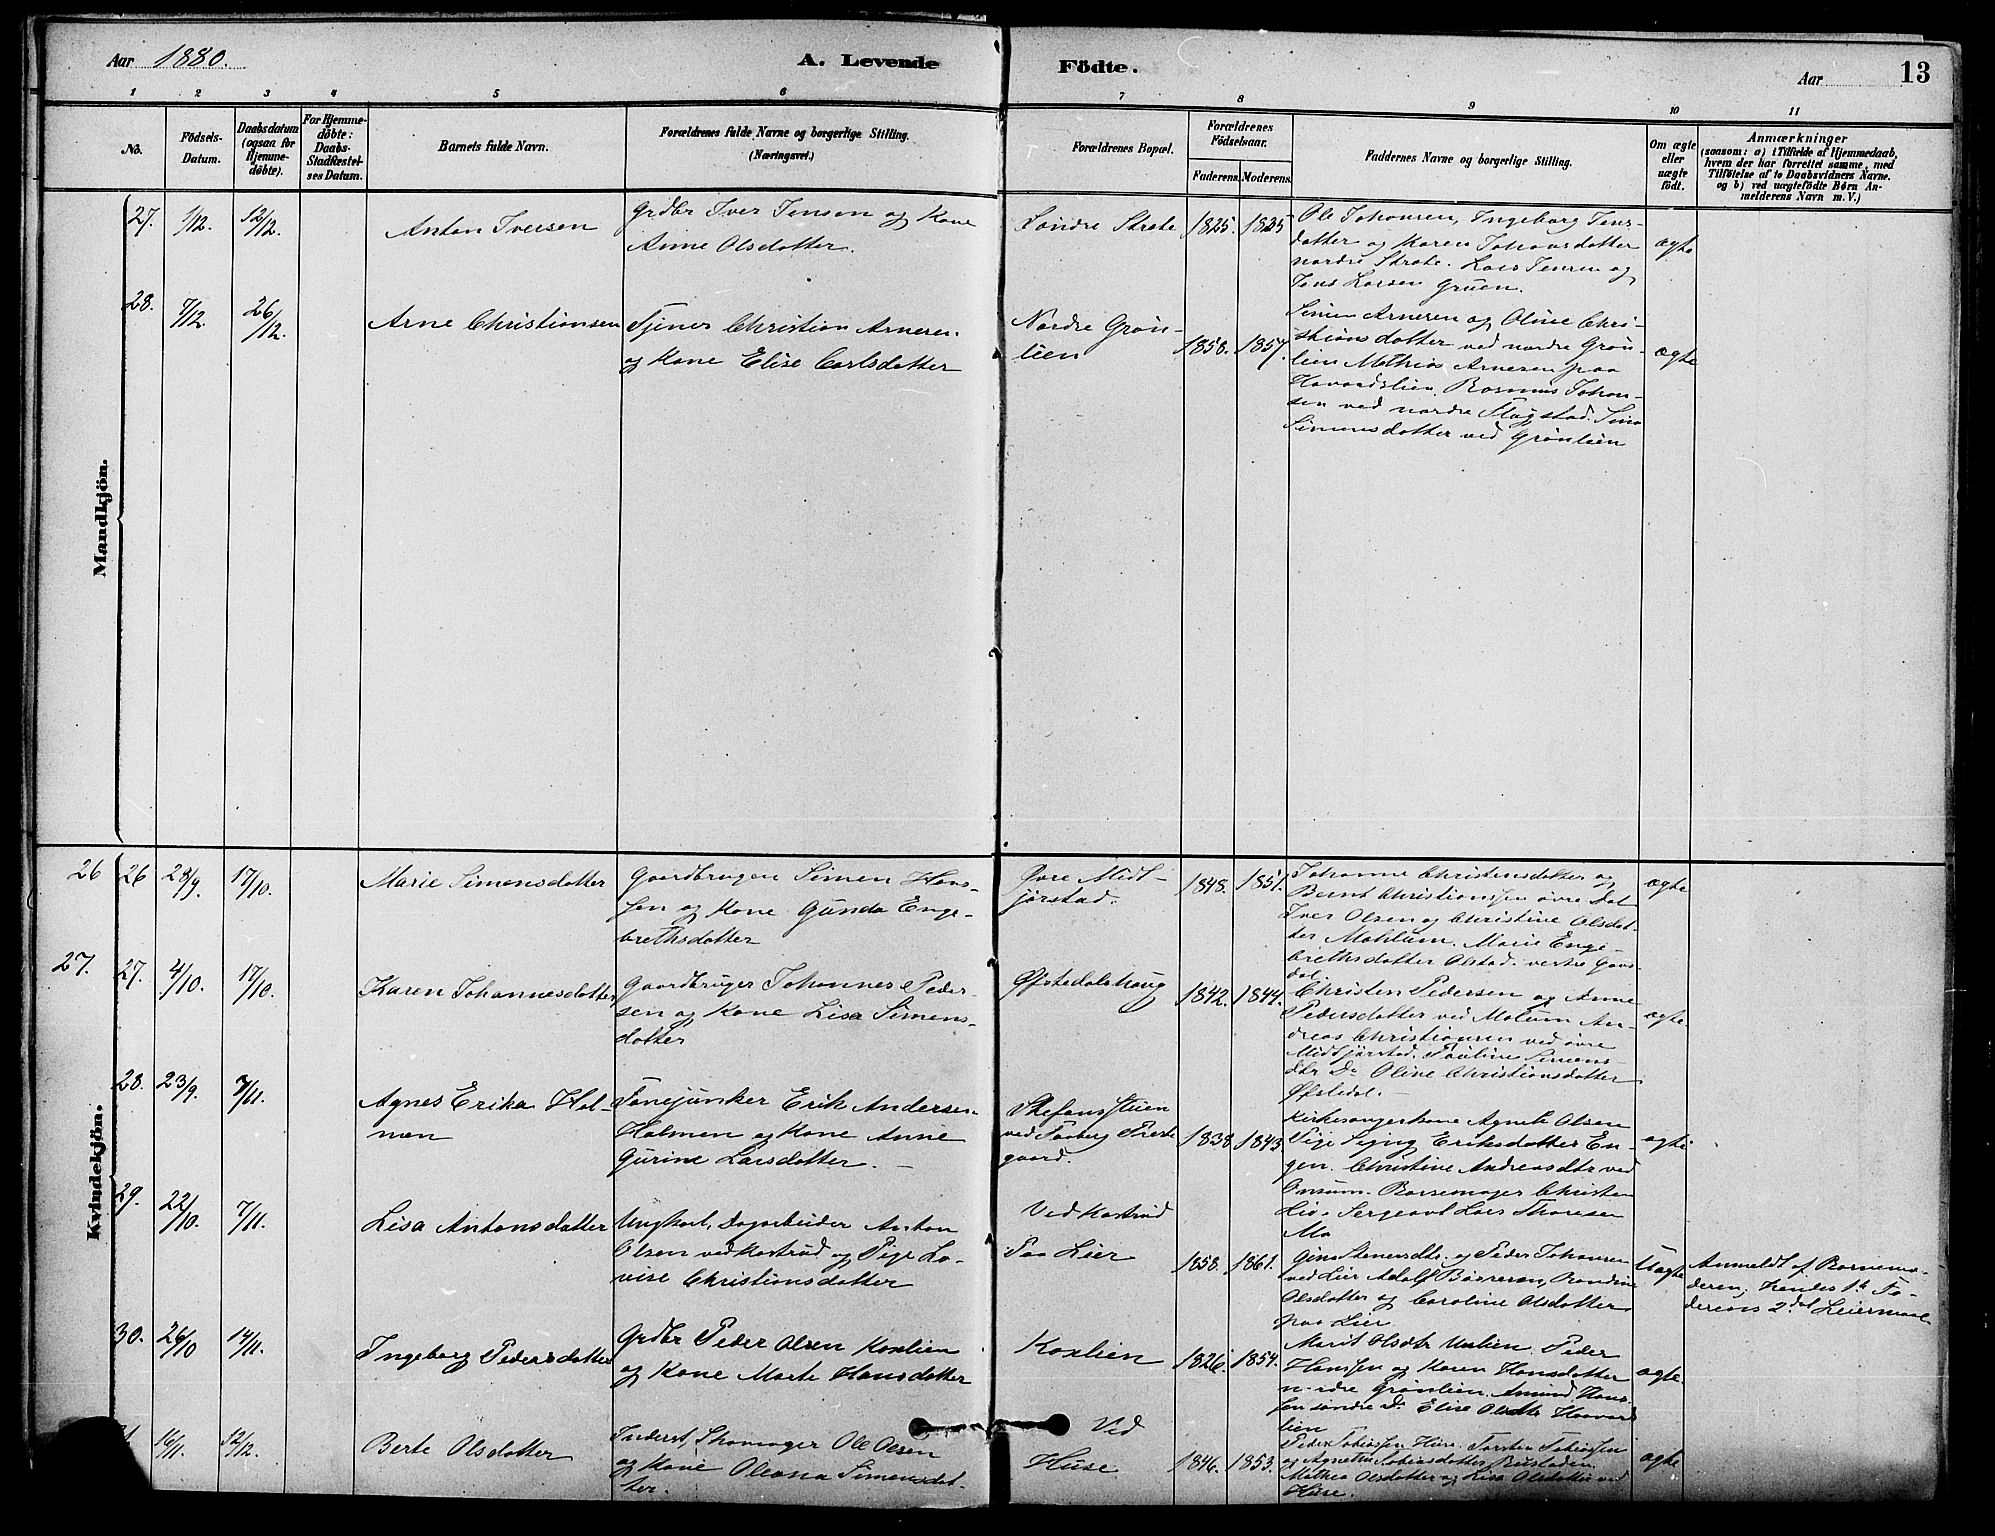 Aar 1880.
A. Levende Födte.
Aar
13
1 2 3 4 5 6 7 8 9 10 11
No.
Födsels-
Datum.
Daabsdatum
(ogsaa for
Hjemme-
döbte).
For Hjemme-
döbte:
Daabs-
Stadfæstel-
ses Datum.
Barnets fulde Navn.
Forældrenes fulde Navne og borgerlige Stilling.
(Næringsvei.)
Forældrenes Bopæl.
Forældrenes
Födselsaar.
Faderens. Moderens.
Faddernes Navne og borgerlige Stilling.
Om ægte
eller
uægte
födt.
Anmærkninger
(saasom: a) i Tilfælde af Hjemmedaab,
hvem der har forrettet samme, med
Tilföielse af to Daabsvidners Navne.
og b) ved uægtefödte Börn An-
melderens Navn m. V.)
Mandkjön.
27. 1/12. 12/12.
Anton Iversen
Grdbr Iver Jensen og Kone
Anne Olsdotter.
Søndre Strate
1825. 1835
Ole Johansen, Ingeborg Jens-
dotter og Karen Johansdotter
nordre Strate. Lars Jensen og
Jens Larsen Gruen.
ægte
28. 7/12. 26/12.
Arne Christiansen
Tjener Christian Arnesen
og Kone Elise Carlsdotter
Nordre Grøn-
lien
1858. 1857.
Simen Arnesen og Oline Chri-
stiansdotter ved nordre Grøn-
lien Mathias Arnesen paa
Havardslien. Rasmus Johan-
sen ved nordre Slagstad. Sina
Simensdotter ved Grønlien
ægte
Kvindekjön.
26 26 28/9. 17/10.
Marie Simensdotter
Gaardbruger Simen Han-
sen og Kone Gunda Enge-
brethsdotter
Øvre Midt-
jørstad.
1848. 1851.
Johanne Christensdotter og
Bernt Christianssen øvre Dal
Iver Olsen og Christine Olsdot-
ter Mahlum. Marie Enge-
brethsdotter Olstad. vestre Gaus-
dal.
ægte
27. 27. 4/10. 17/10.
Karen Johannesdotter
Gaardbruger Johannes Peder-
sen og Kone Lisa Simens-
dotter
Øfstedalshaug
1842. 1844.
Christen Pedersen og Anne
Pedersdotter ved Molum An-
dreas Christiansen ved øvre
Midtjørstad. Pauline Simens-
dtr Do Oline Christiansdotter
Øfstedal.
ægte.
28. 23/9. 7/11.
Agnes Erika Hol-
men
Fanejunker Erik Andersen
Holmen og Kone Anne
Gurine Larsdotter.
Stefansstuen
ved Faaberg Preste
gaard.
1838. 1843.
Kirkesangerkone Agnete Olsen
Pige Eriksdotter En-
gen. Christine Andreasdtr ved
Onsum. Christen
Lie. Sergeant Lars Thoresen
Mo
ægte
29. 22/10. 7/11.
Lisa Antonsdatter
Ungkarl, Dagarbeider Anton
Olsen ved Kastrud og Pige Lo-
vise Christiansdotter
Ved Kastrud
Paa Lier
1858. 1861.
Gina Stenersdtr. og Peder Johansen
ved Lier Adolf Børresen, Randine
Olsdotter og Caroline Olsdotter
paa Lier
Uægte
Anmeldt af Barnemo-
deren, hendes 1ste Fa-
derens 2det Leiermaal
30. 26/10 14/11.
Ingeborg Pedersdotter
Grdbr Peder Olsen Koxlien
og Kone Marte Hansdotter
Koxlien
1826. 1854.
Marit Olsdtr Peder
Hanssen og Karen Hansdotter
n-rdre Grønlien. Amund Hans-
sen søndre Do Elise Olsdtr Haavard
lien
ægte.
16/11. 12/12.
Berte Olsdotter
Inderst, Skomager Ole Olsen
og Kone Oleana Simensdot-
ter.
Ved
Huse
1846. 1853.
Peder Tobiassen Huse. Torsten Tobiassen
og Agnethe Tobiasdotter Rustaden
Mathea Olsdotter og Lisa Olsdotter ved
Huse.
ægte